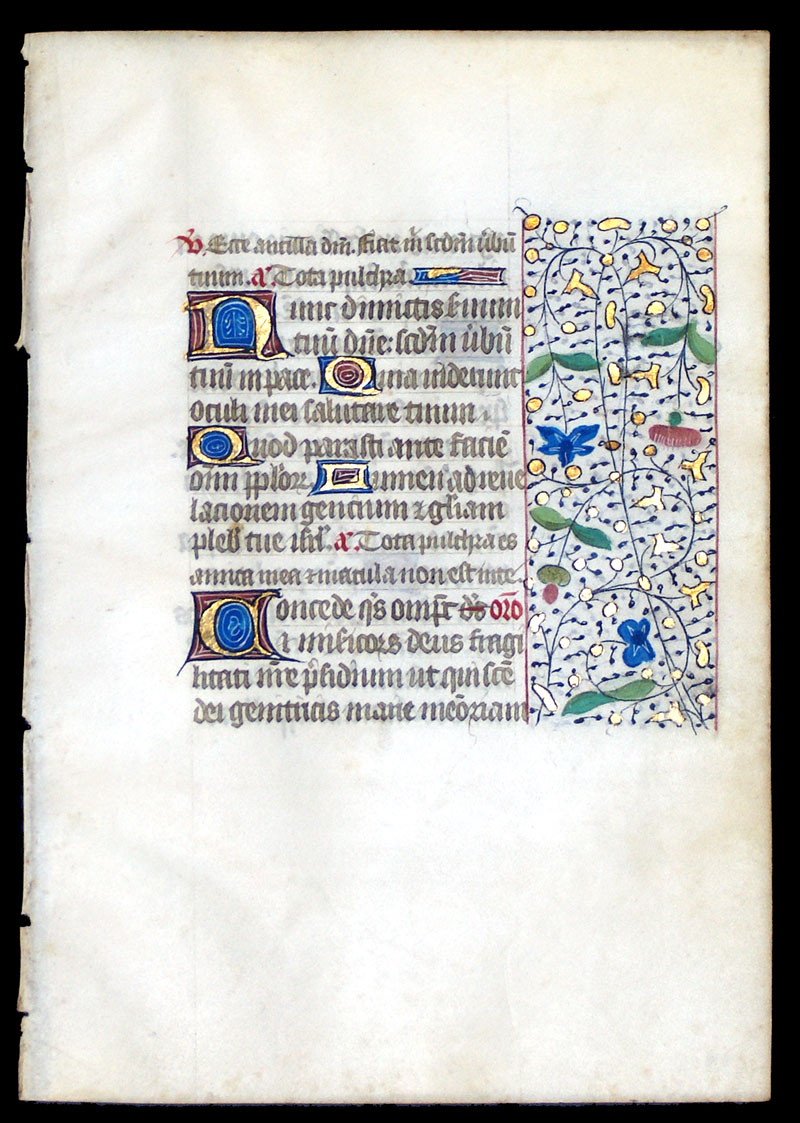 V. Ecce ancilla dñi. fiat m̃ scdm̃ ũbũ
tuum. a. Tota pulchra.
Nunc dimittis seruum
tuũ dñe: scdm̃ ũbũ
tuũ in pace. Quia uiderunt
oculi mei salutare tuum.
Quod parasti ante faciẽ
oĩm pplõꝝ. Lumen ad reue
lacionem gencium ⁊ gl̃iam
pleb̃ tue isrl̃. a. Tota pulchra es
amica mea ⁊ macula non est in te.
Concede q̃s omp̃c d̃s orõ
⁊ misericors deus fragi
litati nr̃e p̃sidium ut qui scẽ
dei genitricis marie memõriam